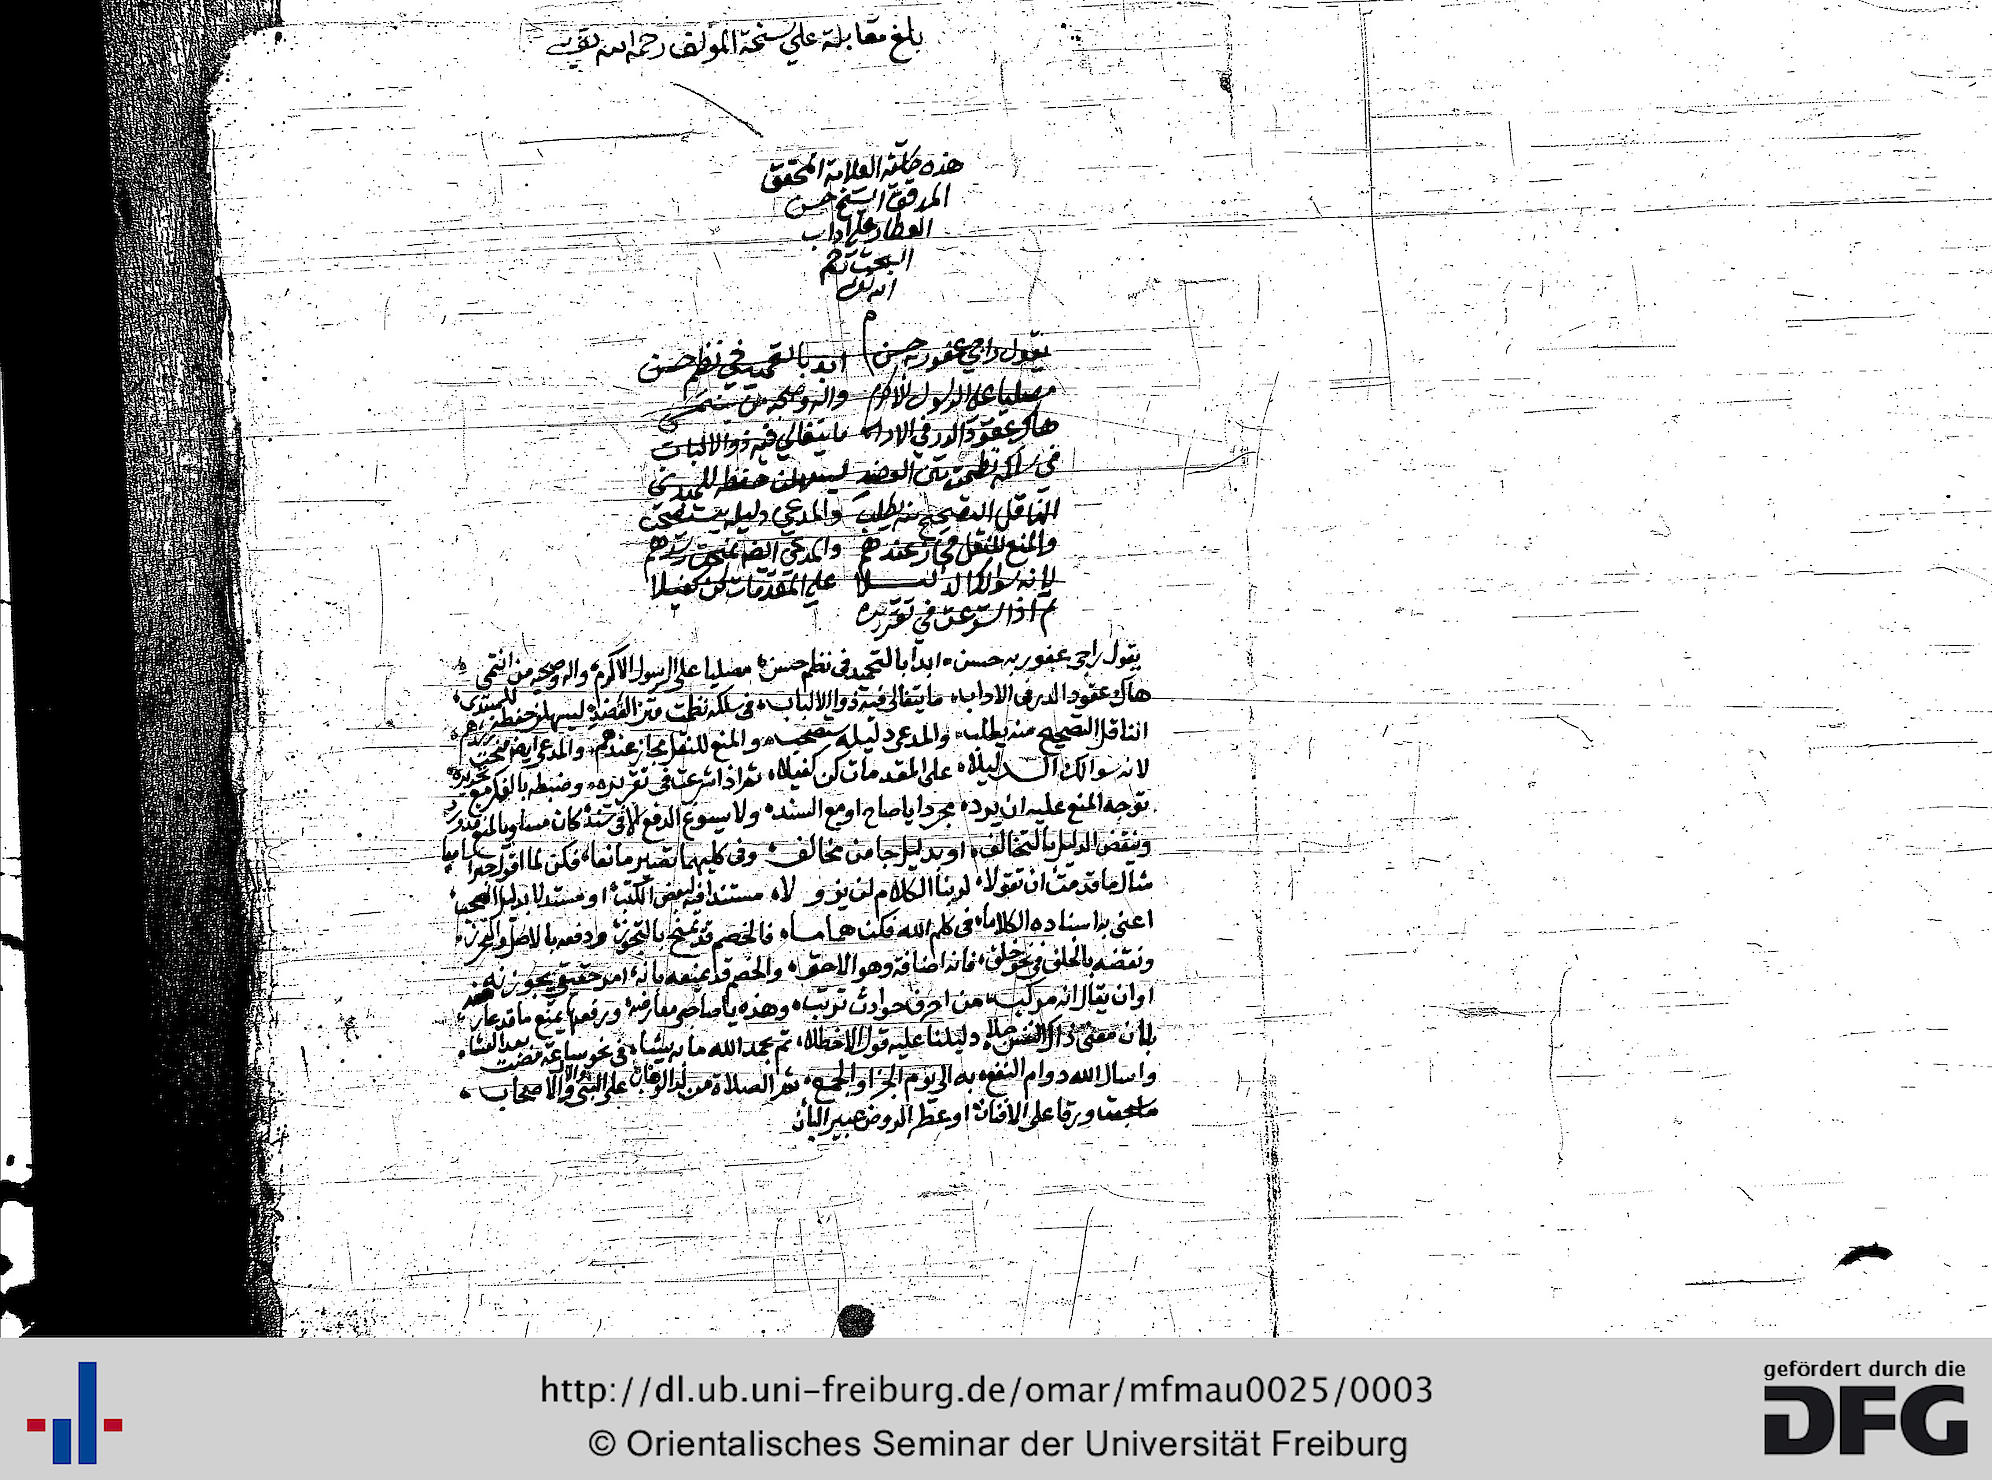 بلغ مقابلة على نسخة المؤلف رحمه الله تعالى
هذه حاشية العلامة المحقق
المدقق الشيخ حسن
العطار على اداب
البحث
الله تعالى
يقول راجي عفو ربه حسن ابدا بالتحميد في نظم حسن
مصليا على الرسول الاكرم واله وصحبه من ينتمي
هاك عقود الدر في الاداب ما يتغالى فيه ذووا الالباب
في سلكه نظمت متن العضد ليسهلن حفظه للمبتدي
الناقل التصحيح منه يطلب والمدعي دليله يستصحب
والمنع للنقل مجاز عندهم والمدعي ايضا
لانه سوالك الدليلا على المقدمات كن كفيلا
ثم اذا اشرعت في تقريره
يقول راجي عفو ربه حسن ابدأ بالتحميد في نظم حسن مصليا على الرسول الاكرم واله وصحبه من انتمي
هاك عقود الدر في الاداب ما يتغالى فيه ذووا الالباب في سلكه نظمت متن العضد ليسهلن حفظه للمبتدى
الناقل التصحيح منه يطلب والمدعى دليله يستصحب والمنع للنقل مجاز عندهم والمدعى ايضا
لانه سوالك الدليلا على المقدمات كن كفيلا ثم اذا شرعت في تقريره وضبطه بالفكر مع تحريره
توجه المنع عليه ان يرد مجردا يا صاح او مع السند ولا يسوغ الدفع الا في سند كان مساويا لمنع قد ورد
ونقض الدليل بالتخالف او بدليل جا من مخالف وفي كليهما تصير مانعا فكن لما اقول
مثال ما قدمت ان تقولا لربنا الكلام لن يزولا مستندا فيه لبعض الكتب او مستدلا بدليل
اعنى بذا اسناده الكلاما في كلم الله فكن هماما فالخصم قد يمنع بالتجوز ودفعه بالاصل والتحرز
ونقضه بالخلق في نحو خلق فانه اضافة وهو الاحق والخصم قد يمنعه بانه امر حقيقي يجوز
او ان يقال انه مركب من احرف حوادث ترتب وهذه يا صاحبي معارضه ورفعها يمنع ما قد عارضه
بان معنى ذاك النفس دليلنا عليه قول الاخطلا تم بحمد الله ما به يشاء في نحو ساعة مضت بعد العشاء
واسال الله دوام النفع به الى يوم الجزا والجمع ثم الصلاة من لدا الوهاب على النبي والال والاصحاب
ما سجعت ورقا على الافنان او عطر الروض عبير البان
http://dl.ub.uni-freiburg.de/omar/mfmau0025/0003
© Orientalisches Seminar der Universität Freiburg
gefördert durch die
DFG